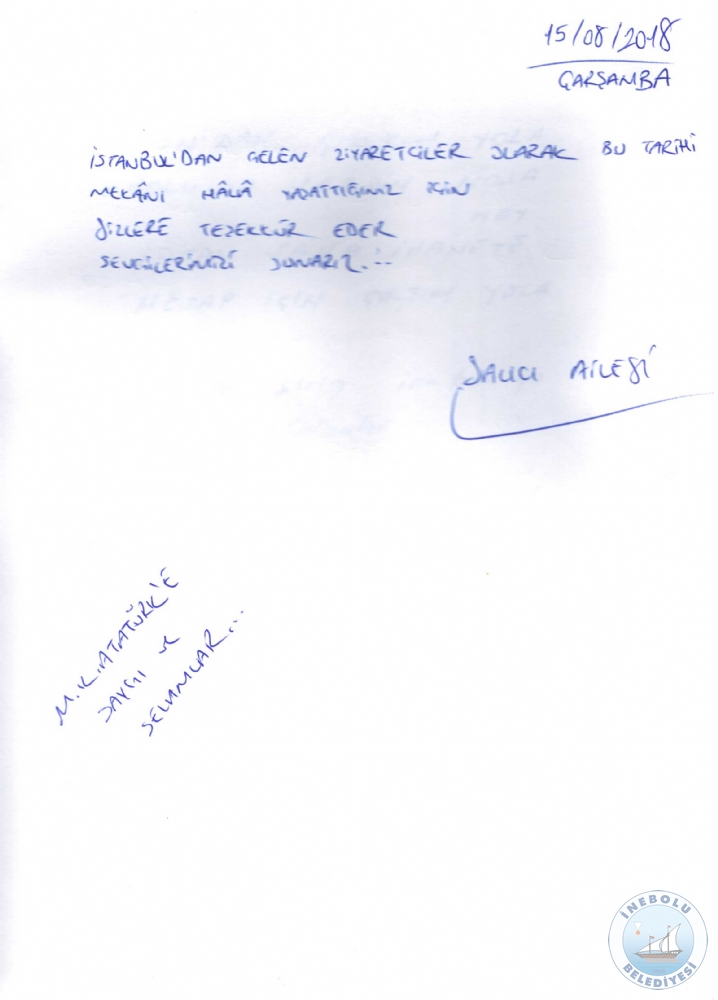 15/08/2018
ÇARŞAMBA
İSTANBUL'DAN GELEN ZİYARETÇİLER OLARAK BU TARİHİ
MEKÂNI HÂLÂ YAŞATTIĞINIZ İÇİN
SİZLERE TEŞEKKÜR EDER
SEVGİLERİMİZİ SUNARIZ...
AİLESİ
M.K.ATATÜRK'E
SAYGI VE
SELAMLAR...
İNEBOLU
BELEDİYESİ